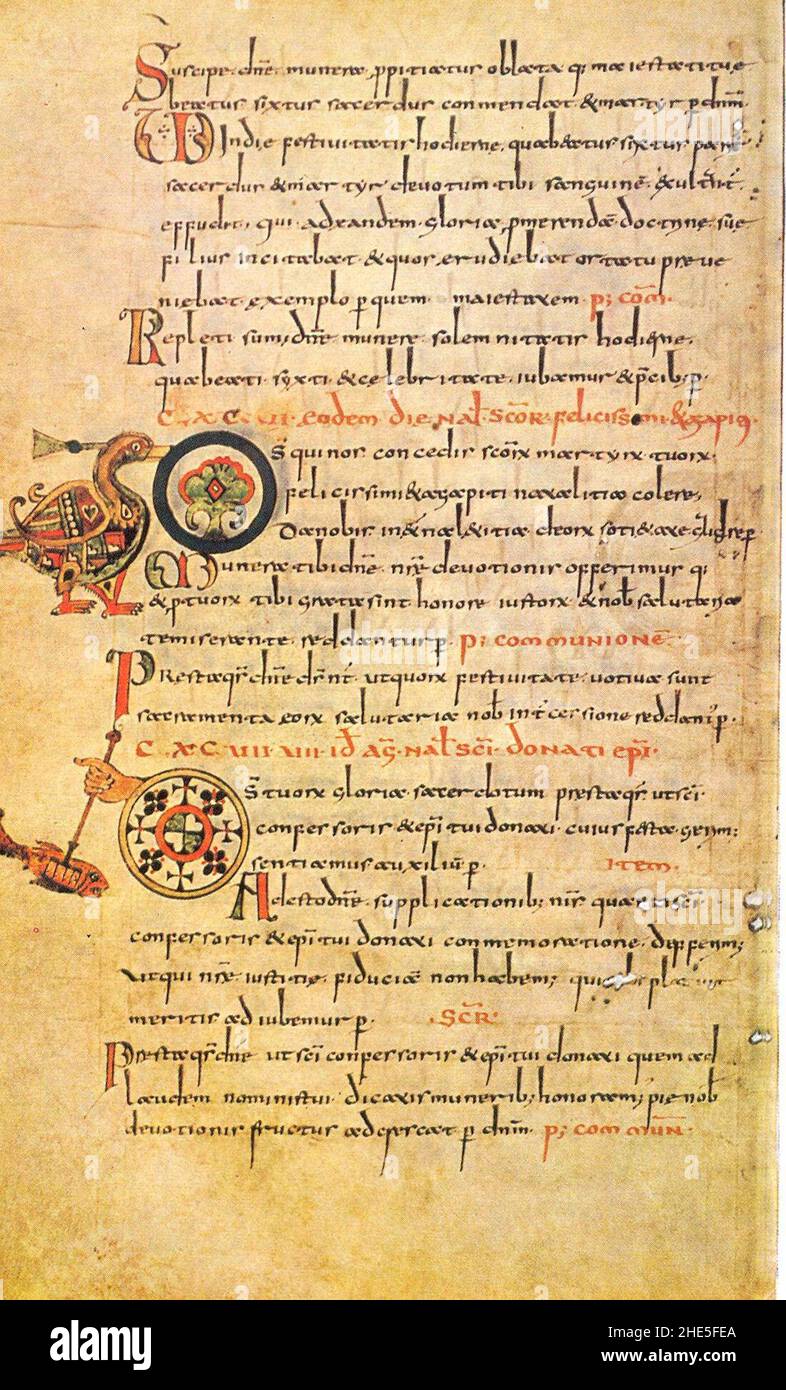 Suscipe dne munera ppitiatur oblata q; maiestati tue
beatus sixtus sacerdus conmendat & martyr p dnm
VD Indie festiuitatis hodierne, qua beatus sixtus pari
sacerdus & martyr deuotum tibi sanguine
effudit, qui ad eandem gloria pmerenda doctrine sue
filius incitabat & quos erudiebat ortatu preue
niebat exemplo p quem maiestatem p; com
Repleti sum; dne munera solemnitatis hodierne,
qua beati syxti & celebritate iubamur & pcib; p
C X C VII eodem die nal scor felicissimi & agapiti
Ds qui nos concedis scorx martyrx tuorx
felicissimi & agapiti natalitia colere,
Da nobis in & na l&itia deorx soti&ate
Munera tibi dne nre deuotionis offerimus q;
& p tuorx tibi grata sint honore iustorx & nob salutaria
te miserante reddantur p p; communione
Presta qs dne ds nt ut quorx festiuitate uotiua sunt
sacramenta eorx salutaria nob intcessione reddant p
C X C VIII VIII id ag nal sci donati epi
Ds tuorx gloria sacerdotum presta qs ut sci
confessoris & epi tui donati cuius festa gerim;
sentiamus auxiliu p item
Adesto dne supplicationib; nis quas in sci
confessoris & epi tui donati conmemoratione deferim;
Ut qui nre iustitie fiducia non habem;
meritis adiubemur p SCR
Presta qs dne ut sci confessoris & epi tui donati quem ad
laudem nominis tui dicatis munerib; honoram; pie nob
deuotionis fructus adcrescat p dnm p; commun
alamy
Image ID: 2HE5FEA
www.alamy.com